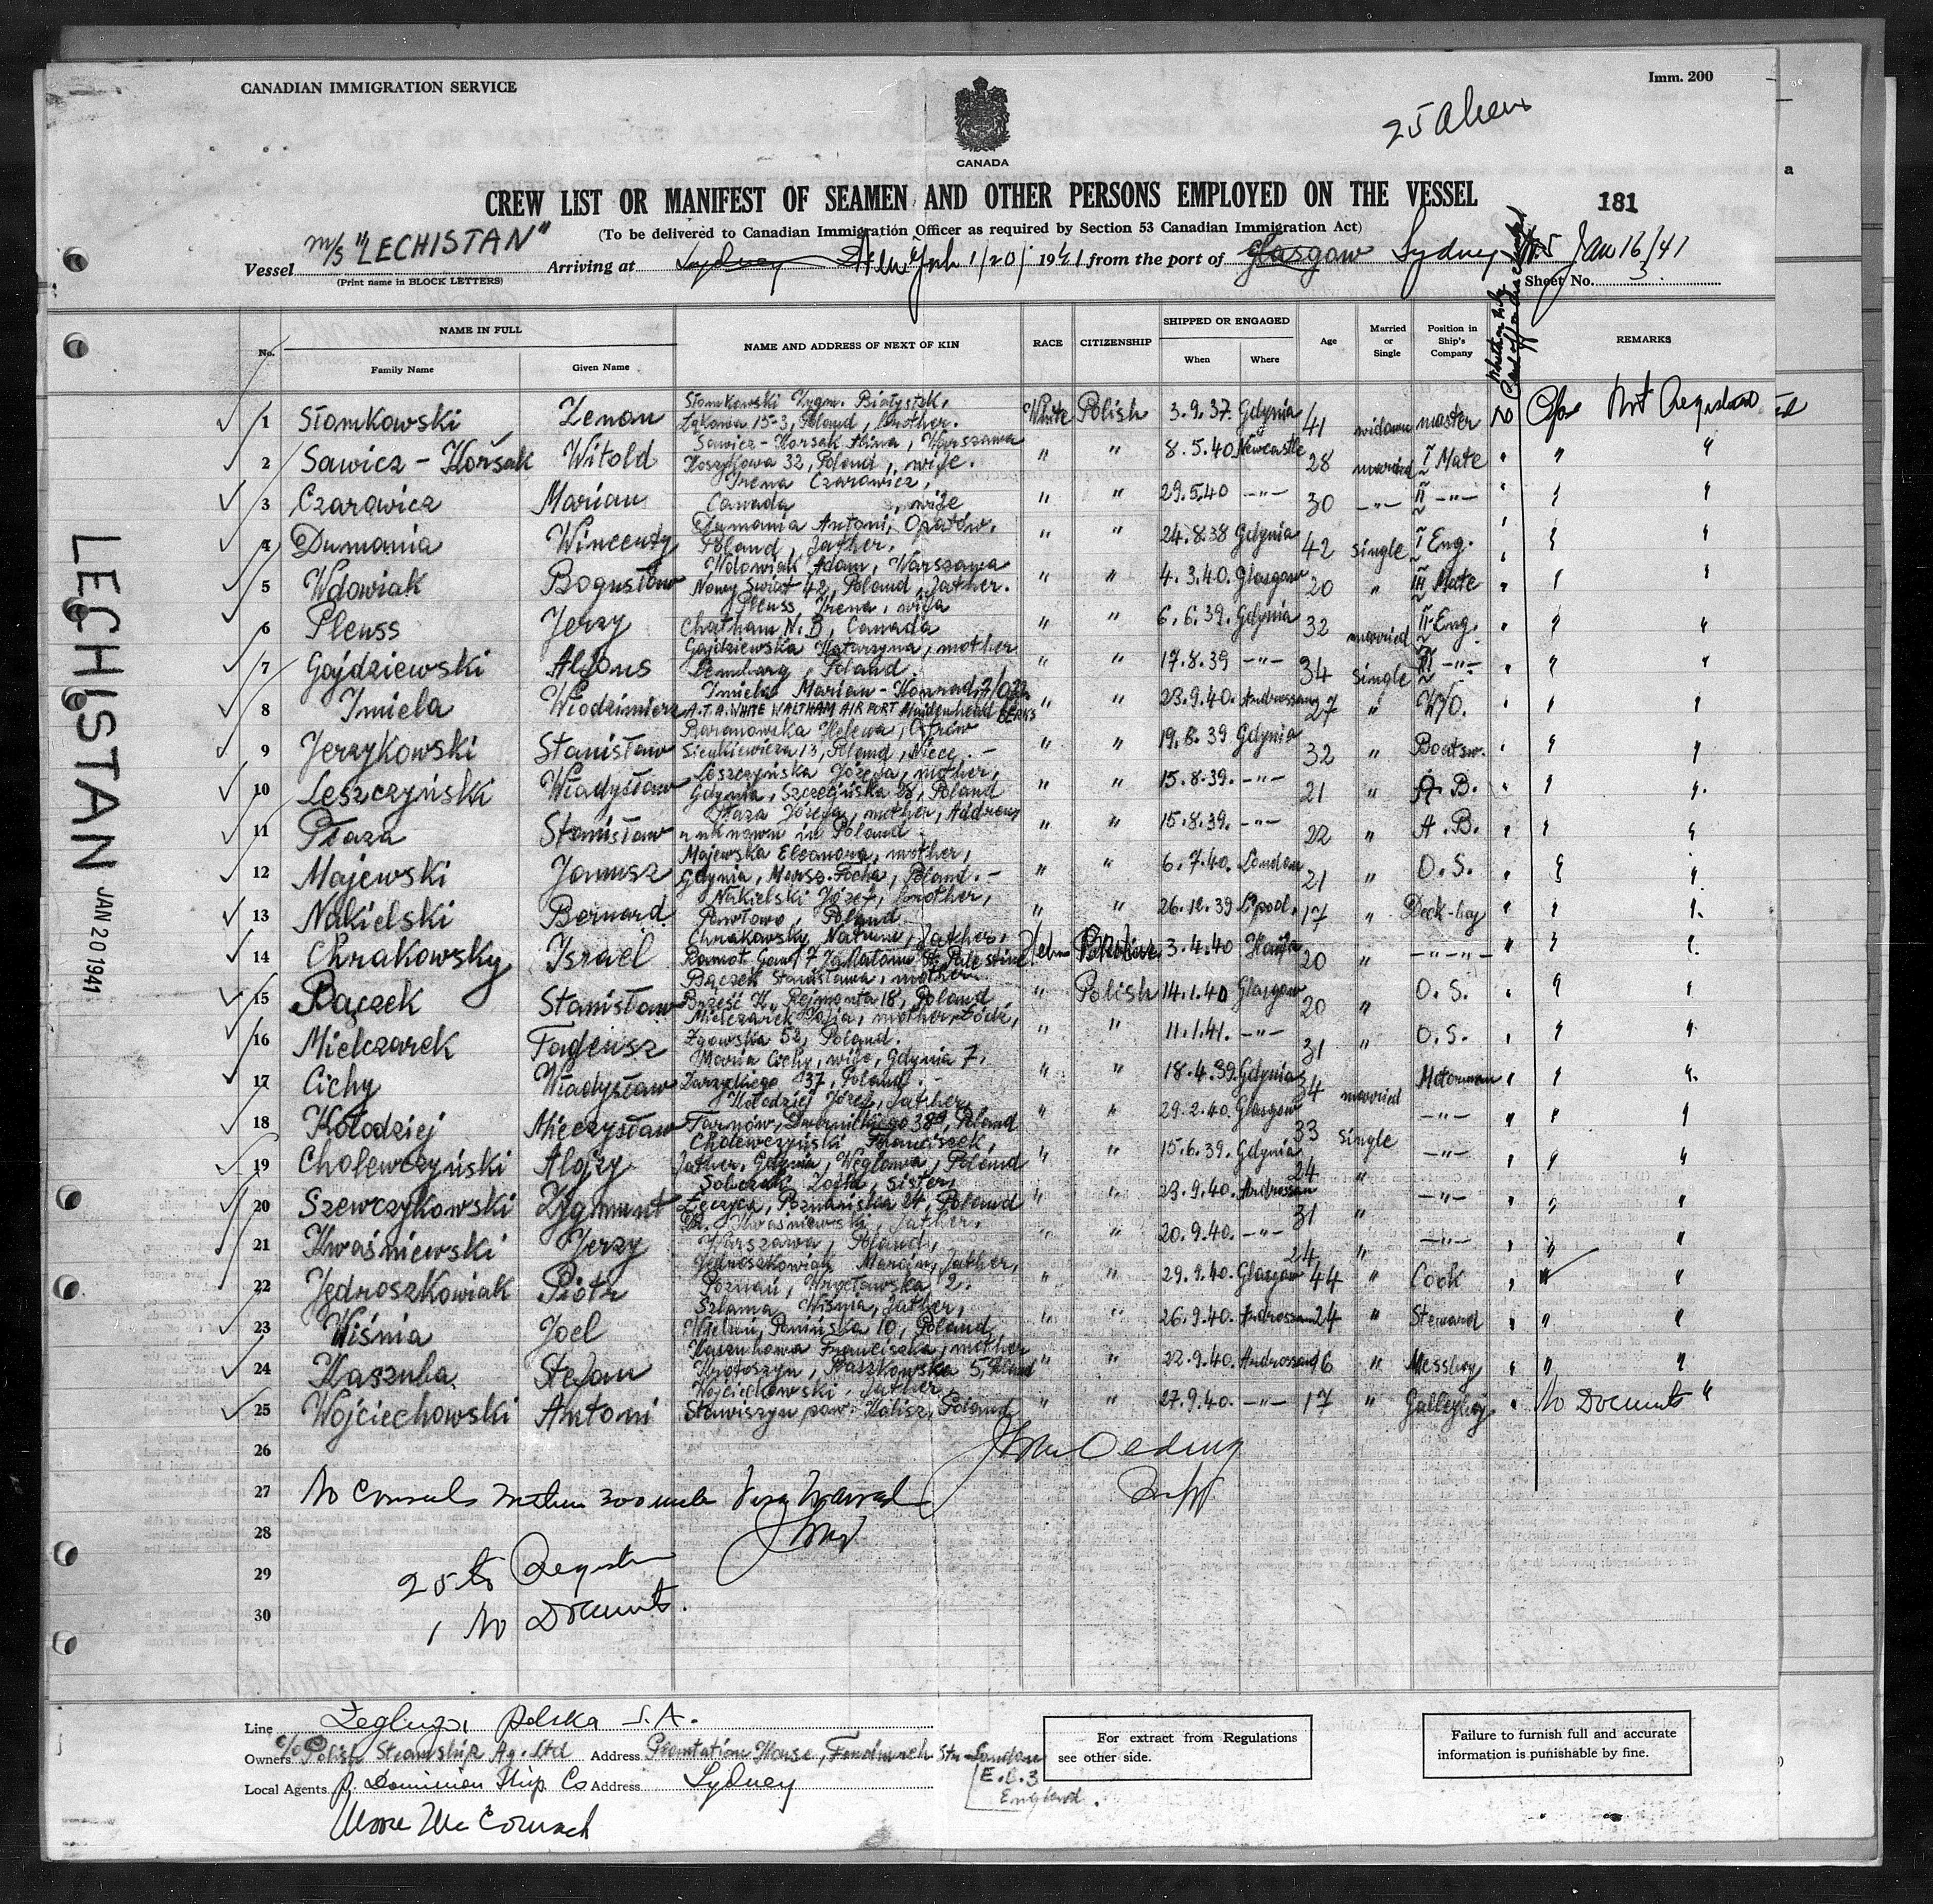 CANADIAN IMMIGRATION SERVICE
Imm. 200
CANADA
CREW LIST OR MANIFEST OF SEAMEN AND OTHER PERSONS EMPLOYED ON THE VESSEL
181
(To be delivered to Canadian Immigration Officer as required by Section 53 Canadian Immigration Act)
Vessel m/s "LECHISTAN" Arriving at Sydney New York 1/20/1941 from the port of Glasgow Sydney N.S Jan 16/41
(Print name in BLOCK LETTERS)
Sheet No.
No. NAME IN FULL NAME AND ADDRESS OF NEXT OF KIN RACE CITIZENSHIP SHIPPED OR ENGAGED Age Married or Single Position in Ship's Company REMARKS
Family Name Given Name When Where
1 Słomkowski Zenon Słomkowski Zygm. Białystok, Poland, brother. White Polish 3.9.37. Gdynia 41 widower master No Not Registered
2 Sawicz-Korsak Witold Sawicz-Korsak Alina, Warszawa Koszykowa 32, Poland, wife. " " 8.5.40 Newcastle 28 married I Mate " " "
3 Czarowicz Marian Irena Czarowicz, Canada, wife " " 29.5.40 -"- 30 -"- II -"- " " "
4 Dumania Wincenty Dumania Antoni, Opatów, Poland, father. " " 24.8.38 Gdynia 42 single I Eng. " " "
5 Wdowiak Bogusław Wdowiak Adam, Warszawa Nowy Świat 42, Poland, father. " " 4.3.40. Glasgow 20 " III Mate " " "
6 Pleuss Jerzy Pleuss Irena, wife Chatham N.B, Canada " " 6.6.39. Gdynia 32 married II Eng. " " "
7 Gajdziewski Alfons Gajdziewska Katarzyna, mother Lemberg, Poland. " " 17.8.39 -"- 34 single III -"- " " "
8 Imiela Włodzimierz Imiela Marian-Konrad, A.T.A. WHITE WALTHAM AIR PORT Maidenhead BERKS " " 23.9.40. Androssan 27 " W/O. " " "
9 Jerzykowski Stanisław Baranowska Helena, Ostrów Sienkiewicza 13, Poland, Niece.- " " 19.8.39 Gdynia 32 " Boatsw. " " "
10 Leszczyński Władysław Leszczyńska Józefa, mother, Gdynia, Szczecińska 28, Poland " " 15.8.39. -"- 21 " A.B. " " "
11 Płaza Stanisław Płaza Józefa, mother, Address unknown in Poland. " " 15.8.39. -"- 22 " A.B. " " "
12 Majewski Janusz Majewska Eleonora, mother, Gdynia, Marsz. Focha, Poland.- " " 6.7.40. London 21 " O.S. " " "
13 Nakielski Bernard Nakielski Józef, Pawłowo, Poland. " " 26.12.39 L'pool. 17 " Deck-boy " " "
14 Chrakowsky Israel Chrakowsky father, Ramot Gan, Palestine 3.4.40 Haifa 20 " -"-"- " " "
15 Bączek Stanisław Bączek Stanisława, mother Brześć K., Rejmonta 18, Poland " Polish 14.1.40 Glasgow 20 " O.S. " " "
16 Mielczarek Tadeusz Mielczarek Zofia, mother, Łódź, Zgowska 52, Poland. " " 11.1.41. -"- 31 " O.S. " " "
17 Cichy Władysław Maria Cichy, wife, Gdynia 7, 137, Poland.- " " 18.4.39. Gdynia 34 married Motorman " " "
18 Kołodziej Mieczysław Kołodziej Józef, father, Tarnów, Poland " " 29.2.40. Glasgow 33 single -"- " " "
19 Cholewczyński Alojzy Cholewczyński Franciszek, father, Gdynia, Węglowa, Poland " " 15.6.39. Gdynia 24 " -"- " " "
20 Szewczykowski Zygmunt Sobczak Zofia, sister, Łęczyca, Poznańska 24, Poland " " 23.9.40. Androssan 31 " -"- " " "
21 Kwaśniewski Jerzy Kwaśniewski, father, Warszawa, Poland, " " 20.9.40. -"- 24 " -"- " " "
22 Jędroszkowiak Piotr Jędroszkowiak Marcin, father, Poznań, 2. " " 29.9.40. Glasgow 44 " Cook " " "
23 Wiśnia Joel Szlama Wiśnia, father, Wieluń, 10, Poland, " " 26.9.40. Androssan 24 " Steward " " "
24 Kaszuba Stefan Franciszka, mother Krotoszyn, Raszkowska 5, Poland " " 22.9.40. Androssan 16 " Messboy " " "
25 Wojciechowski Antoni Wojciechowski, father, Stawiszyn pow. Kalisz, Poland " " 27.9.40. -"- 17 " Galleyboy " No Documents "
26
27 No Consuls within 300 miles Visa Waived
28
29 25 to Register
30 1 No Documents.
LECHISTAN JAN 20 1941
Line Żegluga Polska S.A.
Owners c/o Polish Steamship Ag. Ltd Address Plantation House, Fenchurch Str. London E.C.3 England.
Local Agents Dominion Ship. Co Address Sydney
Moore McCormack
For extract from Regulations see other side.
Failure to furnish full and accurate information is punishable by fine.